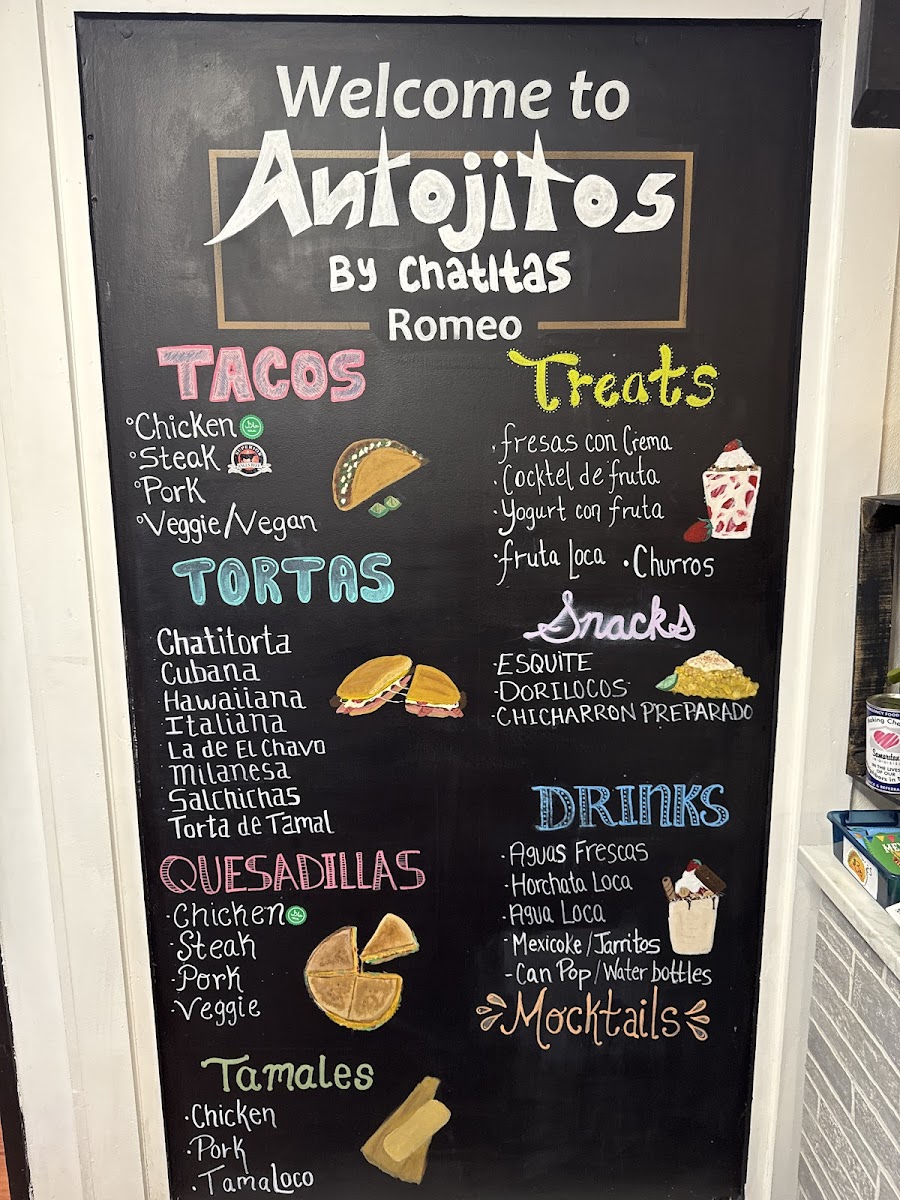 Welcome to
Antojitos
By Chatitas
Romeo
TACOS
Chicken
Steak
Pork
Veggie/Vegan
TORTAS
Chatitorta
Cubana
Hawaiiana
Italiana
La de El Chavo
Milanesa
Salchichas
Torta de Tamal
QUESADILLAS
Chicken
Steak
Pork
Veggie
Tamales
Chicken
Pork
TamaLoco
Treats
fresas con Crema
Cocktel de fruta
Yogurt con fruta
fruta Loca • Churros
Snacks
ESQUITE
DORILOCOS
CHICHARRON PREPARADO
DRINKS
Aguas Frescas
Horchata Loca
Agua Loca
Mexicoke/Jarritos
-Can Pop/Water bottles
Mocktails